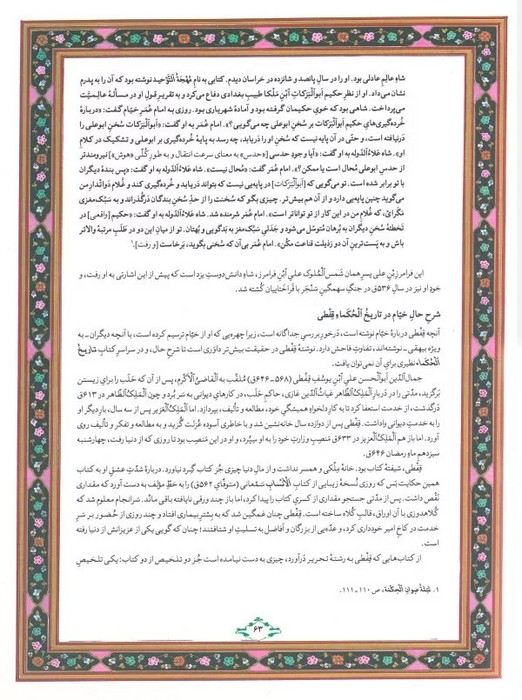 شاهِ عالِمِ عادلی بود. او را در سالِ پانصد و شانزده در خراسان دیدم. کتابی به نام مُهْجَةُ ٱلتَّوْحید نوشته بود که آن را به پدرم
نشان می‌داد. او از نظرِ حکیم أبوٱلْبَرَکات ٱبْنِ مَلْکا طبیبِ بغدادی دفاع می‌کرد و به تقریرِ قولِ او در مسألهٔ عالِمیّت
می‌پرداخت. شاهی بود که خویِ حکیمان گرفته بود و آمادهٔ شهریاری بود. روزی به امام عُمَرِ خیّام گفت: «دربارهٔ
خُرده‌گیری‌هایِ حکیم أبوٱلْبَرَکات بر سُخَنِ ابوعلی چه می‌گویی؟». امام عُمَر به او گفت: «أبوٱلْبَرَکات، سُخَنِ ابوعلی را
دَرنیافته است، و حتّی در آن پایه نیست که سُخَنِ او را دَریابد، چه رسد به پایهٔ خُرده‌گیری بر ابوعلی و تشکیک در کلامِ
او». شاه عَلاءُٱلدّوله به او گفت: «آیا وجودِ حدسی («حدس» به معنای سرعت انتقال و به طورِ کُلّی «هوش») نیرومندتر
از حدسِ ابوعلی مُحال است یا ممکن؟». امام عُمَر گفت: «مُحال نیست». شاه عَلاءُٱلدّوله به او گفت: «پس بندهٔ دیگران
با تو برابر شده است. تو می‌گویی که [أبوٱلْبَرَکات] در پایه‌یی نیست که بتواند دریابد و خُرده‌گیری کند و غُلامِ دَواتْدارِ من
می‌گوید چنین پایه‌یی دارد و از آن هم بیش‌تر. چیزی بگو که سُخَنت را از حدِّ سُخَنِ بندگان دَرگُذرانَد و به سَبُک‌مغزی
مَگَرای، که غُلامِ من در این کار از تو تواناتر است». امام عُمَر شرمنده شد. شاه عَلاءُٱلدّوله به او گفت: «حکیمِ [واقعی] در
تَخطئهٔ سُخَنِ دیگران به بُرهان مُتوسِّل می‌شود و جَدَلیِ سَبُک‌مغز به بَدگویی و بُهتان. تو از میانِ این دو در طَلَبِ مرتبهٔ والاتر
باش و به پَست‌ترینِ آن دو رَذیلت قناعت مکُن». امام عُمَر بی‌آن که سُخَنی بگوید، بَرخاست [و رفت].¹
این فرامرز بْنِ علی پسرِ همان شَمسُ ٱلْمُلوک علیِ ٱبْنِ فرامرز، شاهِ دانش‌دوستِ یزد است که پیش از این اشارتی به او رفت، و
خودِ او نیز در سال ۵۳۶ق در جنگِ سهمگینِ سَنْجَر با قَراختاییان کُشته شد.
شرحِ حالِ خیّام در تاریخُ ٱلْحُکَماءِ قِفْطی
آنچه قِفْطی دربارهٔ خیّام نوشته است، دَرخورِ بررسیِ جداگانه است، زیرا چهره‌یی که او از خیّام ترسیم کرده است، با آنچه دیگران ـ به
ویژه بیهقی ـ نوشته‌اند، تفاوتِ فاحش دارد. نوشتهٔ قِفْطی در حقیقت بیش‌تر داوَری است تا شرحِ حال، و در سراسرِ کتاب تاریخُ
ٱلْحُکَماء نظیری برای آن نمی‌توان یافت.
جمالُ‌ٱلدّین أبوٱلْحسن علیِ بْنِ یوسُفِ قِفْطی (۵۶۸ـ۶۴۶ق) مُلقّب به ٱلْقاضِیُ ٱلْأَکْرَم، پس از آن که حَلَب را برای زیستن
برگزید، مدّتی را در دَربارِ ٱلْمَلِکُ ٱلظّاهِر غیاثُ‌ٱلدّین غازی، حاکمِ حَلَب، در کارهای دیوانی به سَر بُرد و چون ٱلْمَلِکُ ٱلظّاهِر در ۶۱۳ق
دَرگذشت، از خدمت استعفا کرد تا به کارِ دلخواهِ همیشگیِ خود، مطالعه و تألیف، بپردازد. اما ٱلْمَلِکُ ٱلْعَزیز پس از سه سال، بارِ دیگر او
را به خدمتِ دیوانی واداشت. قِفْطی پس از دوازده سال خانه‌نشین شد و با خاطری آسوده عُزلت گُزید و به مطالعه و تفکّر و تألیف رویْ
آورد. اما باز هم ٱلْمَلِکُ ٱلْعَزیز در ۶۳۳ق منصبِ وزارتِ خود را به او سپُرد، و او در این مَنصِب بود تا روزی که از دنیا رفت، چهارشنبه
سیزدهمِ ماهِ رمضان ۶۴۶ق.
قِفْطی، شیفتهٔ کتاب بود. خانهٔ مِلکی و همسر نداشت و از مالِ دنیا چیزی جُز کتاب گِرد نیاورد. دربارهٔ شدّتِ عشقِ او به کتاب
همین حکایت بَس که روزی نُسخهٔ زیبایی از کتابِ ٱلْأَنْسابِ سَمْعانی (متوفّای ۵۶۲ق) را به خطِّ مؤلّف به دست آورد که مقداری
نَقْص داشت. پس از مدّتی جستجو مقداری از کَسریِ کتاب را پیدا کرد، اما باز چند ورقی نایافته باقی ماند. سَرانجام معلوم شد که
کُلاهدوزی با آن اوراق، قالبِ کُلاه ساخته است. قِفْطی چنان غمگین شد که به بِسترِ بیماری افتاد و چند روزی از حُضور بر سَرِ
خدمت در کاخِ امیر خودداری کرد، و عدّه‌یی از بزرگان و أفاضل به تسلیتِ او شتافتند؛ چنان که گویی یکی از عزیزانش از دنیا رفته
است.
از کتاب‌هایی که قِفْطی به رشتهٔ تحریر دَرآورد، چیزی به دست نیامده است جُز دو تلخیص از دو کتاب: یکی تلخیصِ
۱. تَتِمَّةُ صِوانُ ٱلْحِکْمَة، ص ۱۱۰-۱۱۱.
۶۳